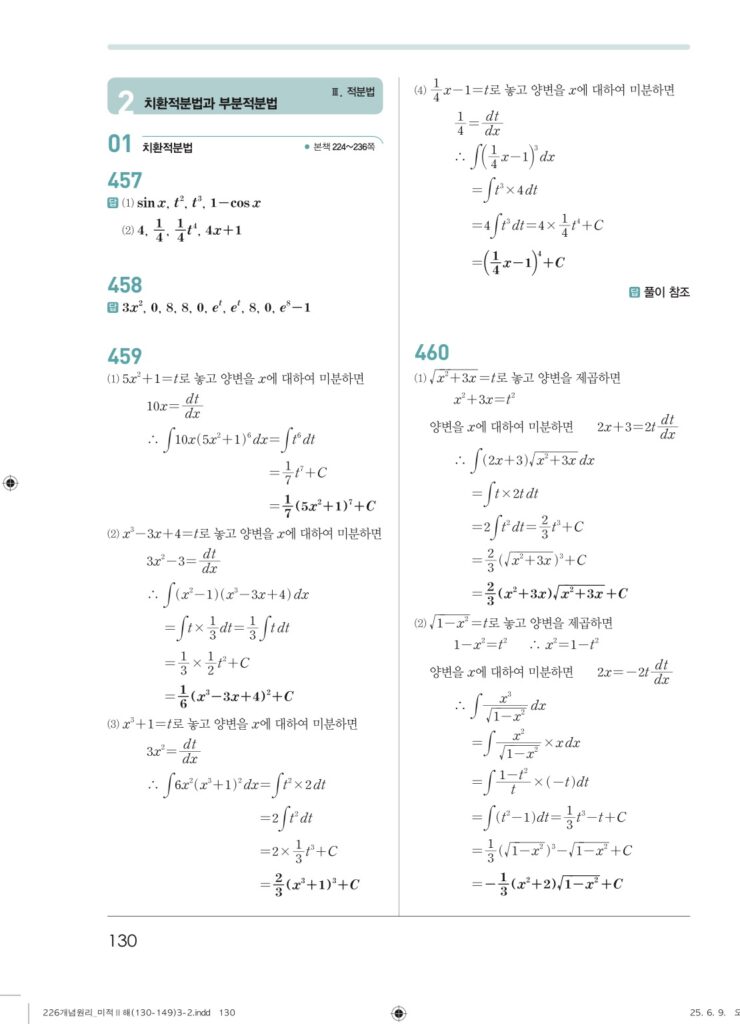 2 치환적분법과 부분적분법
Ⅲ. 적분법
01 치환적분법
● 본책 224~236쪽
457
답 (1) sin x, t², t³, 1−cos x
(2) 4, 1/4, 1/4 t⁴, 4x+1
458
답 3x², 0, 8, 8, 0, eᵗ, eᵗ, 8, 0, e⁸−1
459
(1) 5x²+1=t로 놓고 양변을 x에 대하여 미분하면
10x=dt/dx
∴ ∫10x(5x²+1)⁶dx=∫t⁶dt
=1/7 t⁷+C
=1/7(5x²+1)⁷+C
(2) x³−3x+4=t로 놓고 양변을 x에 대하여 미분하면
3x²−3=dt/dx
∴ ∫(x²−1)(x³−3x+4)dx
=∫t×1/3 dt=1/3∫t dt
=1/3×1/2 t²+C
=1/6(x³−3x+4)²+C
(3) x³+1=t로 놓고 양변을 x에 대하여 미분하면
3x²=dt/dx
∴ ∫6x²(x³+1)²dx=∫t²×2dt
=2∫t²dt
=2×1/3 t³+C
=2/3(x³+1)³+C
(4) 1/4 x−1=t로 놓고 양변을 x에 대하여 미분하면
1/4=dt/dx
∴ ∫(1/4 x−1)³dx
=∫t³×4dt
=4∫t³dt=4×1/4 t⁴+C
=(1/4 x−1)⁴+C
답 풀이 참조
460
(1) √(x²+3x)=t로 놓고 양변을 제곱하면
x²+3x=t²
양변을 x에 대하여 미분하면 2x+3=2t dt/dx
∴ ∫(2x+3)√(x²+3x) dx
=∫t×2t dt
=2∫t²dt=2/3 t³+C
=2/3(√(x²+3x))³+C
=2/3(x²+3x)√(x²+3x)+C
(2) √(1−x²)=t로 놓고 양변을 제곱하면
1−x²=t² ∴ x²=1−t²
양변을 x에 대하여 미분하면 2x=−2t dt/dx
∴ ∫x³/√(1−x²) dx
=∫x²/√(1−x²)×x dx
=∫(1−t²)/t×(−t)dt
=∫(t²−1)dt=1/3 t³−t+C
=1/3(√(1−x²))³−√(1−x²)+C
=−1/3(x²+2)√(1−x²)+C
130
226개념원리_미적Ⅱ해(130-149)3-2.indd 130
25. 6. 9.